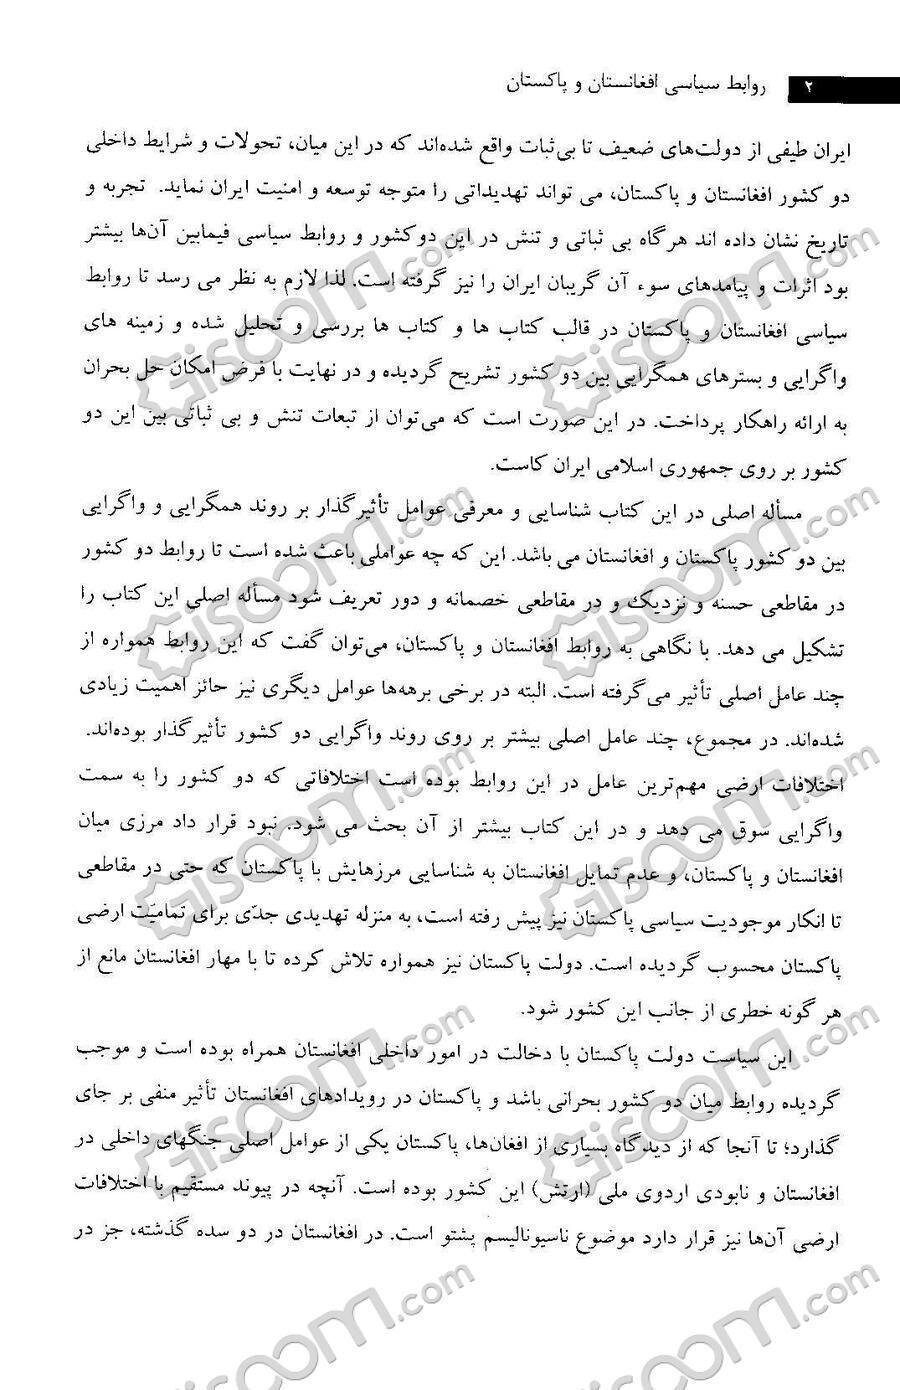 ۲ روابط سیاسی افغانستان و پاکستان
ایران طیفی از دولت‌های ضعیف تا بی‌ثبات واقع شده‌اند که در این میان، تحولات و شرایط داخلی
دو کشور افغانستان و پاکستان، می تواند تهدیداتی را متوجه توسعه و امنیت ایران نماید. تجربه و
تاریخ نشان داده اند هرگاه بی ثباتی و تنش در این دوکشور و روابط سیاسی فیمابین آن‌ها بیشتر
بود اثرات و پیامدهای سوء آن گریبان ایران را نیز گرفته است. لذا لازم به نظر می رسد تا روابط
سیاسی افغانستان و پاکستان در قالب کتاب ها و کتاب ها بررسی و تحلیل شده و زمینه های
واگرایی و بسترهای همگرایی بین دو کشور تشریح گردیده و در نهایت با فرض امکان حل بحران
به ارائه راهکار پرداخت. در این صورت است که می‌توان از تبعات تنش و بی ثباتی بین این دو
کشور بر روی جمهوری اسلامی ایران کاست.
مسأله اصلی در این کتاب شناسایی و معرفی عوامل تأثیرگذار بر روند همگرایی و واگرایی
بین دو کشور پاکستان و افغانستان می باشد. این که چه عواملی باعث شده است تا روابط دو کشور
در مقاطعی حسنه و نزدیک و در مقاطعی خصمانه و دور تعریف شود مسأله اصلی این کتاب را
تشکیل می دهد. با نگاهی به روابط افغانستان و پاکستان، می‌توان گفت که این روابط همواره از
چند عامل اصلی تأثیر می‌گرفته است. البته در برخی برهه‌ها عوامل دیگری نیز حائز اهمیت زیادی
شده‌اند. در مجموع، چند عامل اصلی بیشتر بر روی روند واگرایی دو کشور تأثیرگذار بوده‌اند.
اختلافات ارضی مهم‌ترین عامل در این روابط بوده است اختلافاتی که دو کشور را به سمت
واگرایی سوق می دهد و در این کتاب بیشتر از آن بحث می شود. نبود قرار داد مرزی میان
افغانستان و پاکستان، و عدم تمایل افغانستان به شناسایی مرزهایش با پاکستان که حتی در مقاطعی
تا انکار موجودیت سیاسی پاکستان نیز پیش رفته است، به منزله تهدیدی جدّی برای تمامیّت ارضی
پاکستان محسوب گردیده است. دولت پاکستان نیز همواره تلاش کرده تا با مهار افغانستان مانع از
هر گونه خطری از جانب این کشور شود.
این سیاست دولت پاکستان با دخالت در امور داخلی افغانستان همراه بوده است و موجب
گردیده روابط میان دو کشور بحرانی باشد و پاکستان در رویدادهای افغانستان تأثیر منفی بر جای
گذارد؛ تا آنجا که از دیدگاه بسیاری از افغان‌ها، پاکستان یکی از عوامل اصلی جنگهای داخلی در
افغانستان و نابودی اردوی ملی (ارتش) این کشور بوده است. آنچه در پیوند مستقیم با اختلافات
ارضی آن‌ها نیز قرار دارد موضوع ناسیونالیسم پشتو است. در افغانستان در دو سده گذشته، جز در
Giscoom.com
Giscoom.com
Giscoom.com
Giscoom.com
Giscoom.com
Giscoom.com
Giscoom.com
Giscoom.com
Giscoom.com
Giscoom.com